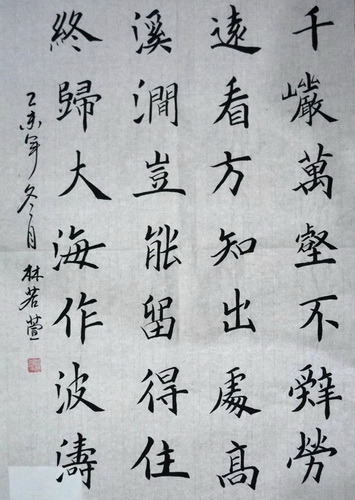 千巖萬壑不辭勞
遠看方知出處高
溪澗豈能留得住
終歸大海作波濤
乙未年冬月林若萱